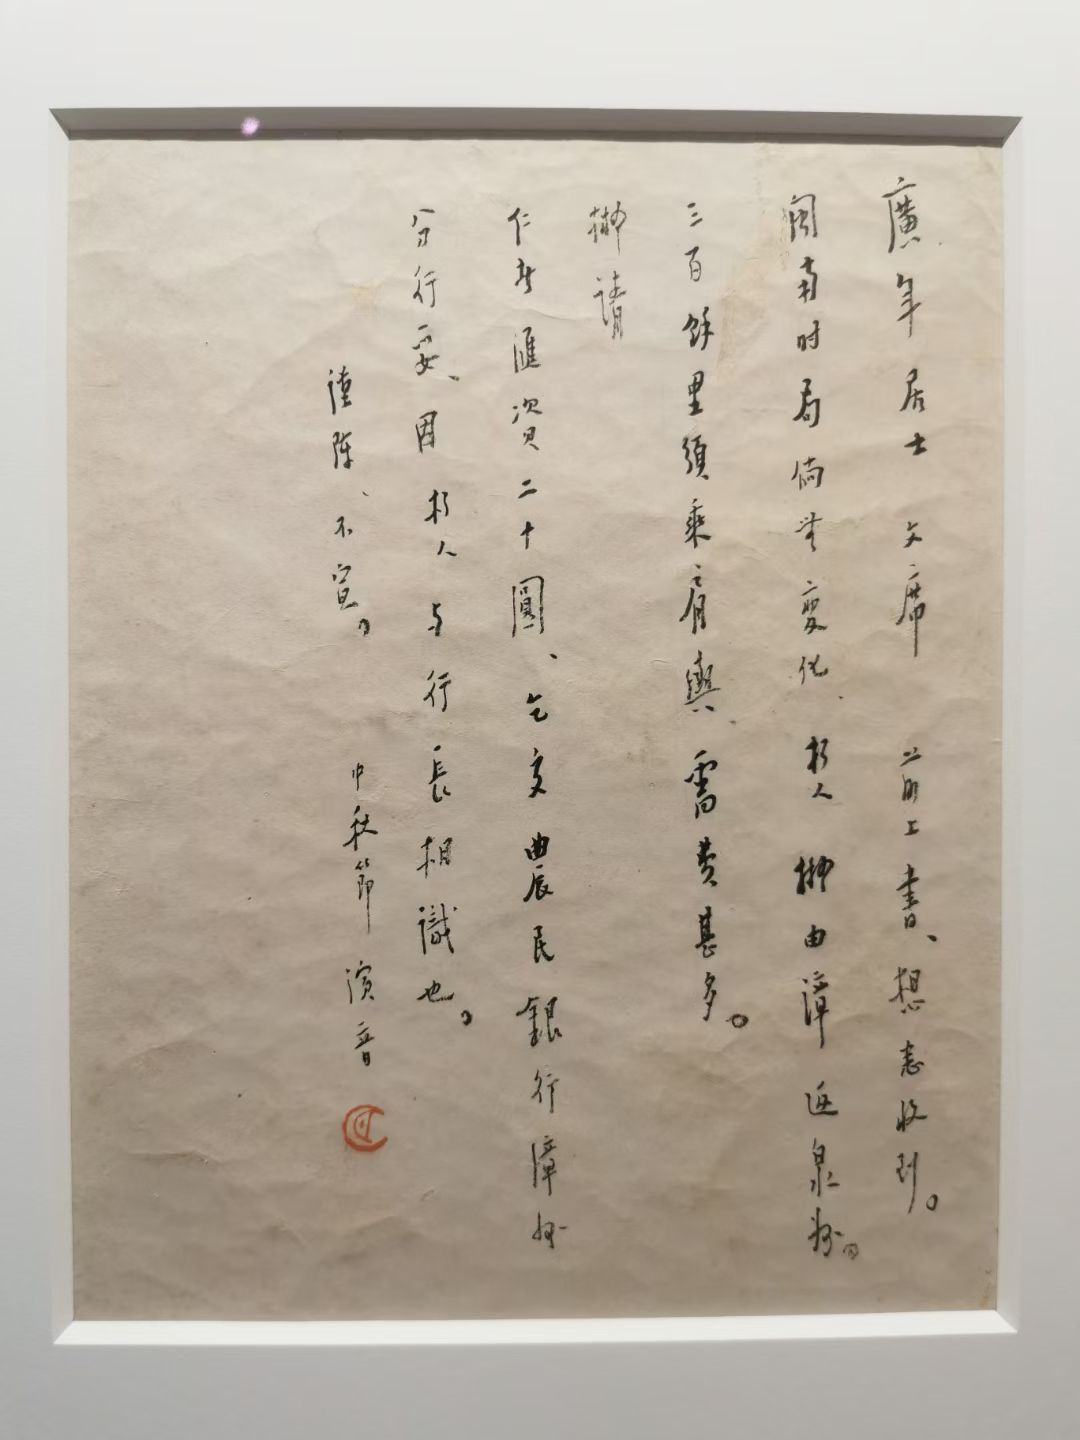 廣年居士 文席 前上書、想悉收到。
閩南时局倘無变化、朽人擬由漳返泉州。
三百餘里須乘肩輿、需費甚多。
擬請
仁者匯資二十圓、乞交農民銀行漳州
分行妥、因朽人与行長相識也。
謹陳、不宣。
中秋節 演音